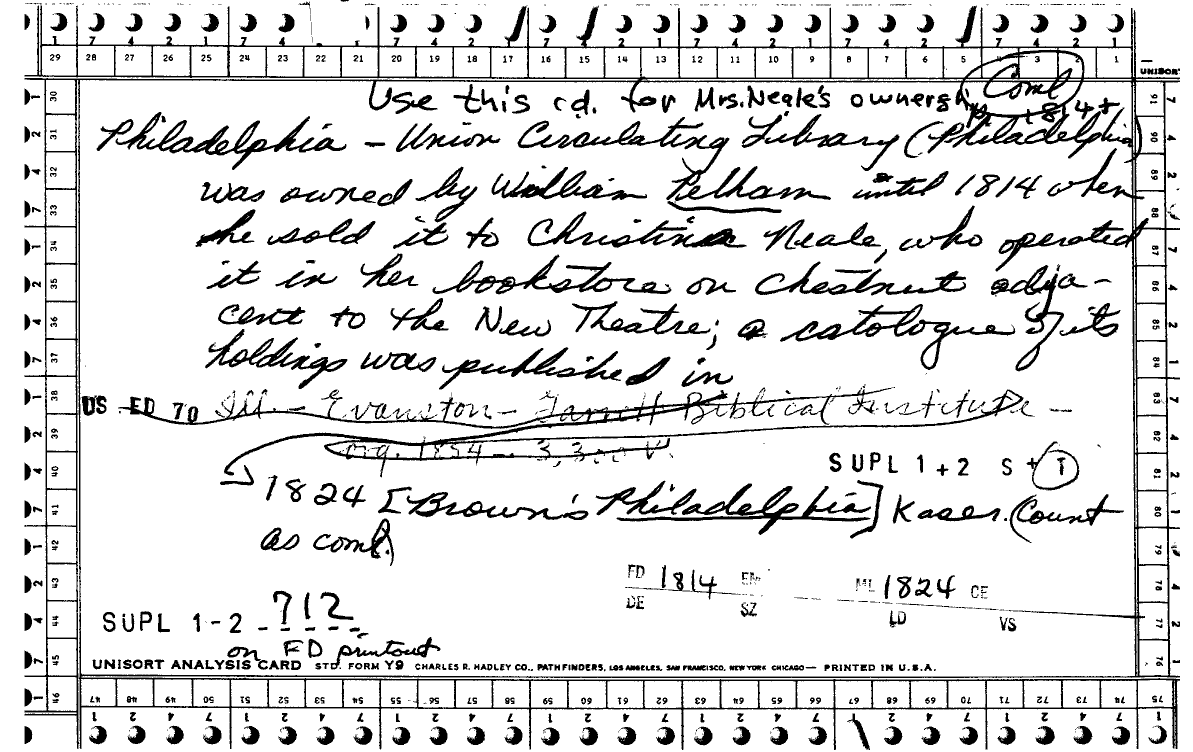 7 4 2 1 7 4 7 4 2 1 7 4 2 1 7 4 2 1 7 4 2 1
29 28 27 26 25 24 23 22 21 20 19 18 17 16 15 14 13 12 11 10 9 8 7 6 5 4 3 2 1
UNISORT
Use this cd. for Mrs. Neale's ownership 1814+
Coml
Philadelphia - Union Circulating Library (Philadelphia)
was owned by William Pelham until 1814 when
he sold it to Christina Neale, who operated
it in her bookstore on Chestnut adja-
cent to the New Theatre; a catologue of its
holdings was published in
US ED 70 Ill. - Evanston - Garrett Biblical Institute -
org. 1854 - 3,300 V.
SUPL 1+2 S+ 1
1824 [Brown's Philadelphia] Kaser. (Count
as coml.)
FD 1814 EN ML 1824 CE
DE SZ LD VS
SUPL 1-2 - 712
on FD printout
UNISORT ANALYSIS CARD STD. FORM Y9 CHARLES R. HADLEY CO., PATHFINDERS, LOS ANGELES, SAN FRANCISCO, NEW YORK CHICAGO — PRINTED IN U.S.A.
30 31 32 33 34 35 36 37 38 39 40 41 42 43 44 45 46
91 90 89 88 87 86 85 84 83 82 81 80 79 78 77 76 75
47 48 49 50 51 52 53 54 55 56 57 58 59 60 61 62 63 64 65 66 67 68 69 70 71 72 73 74 75